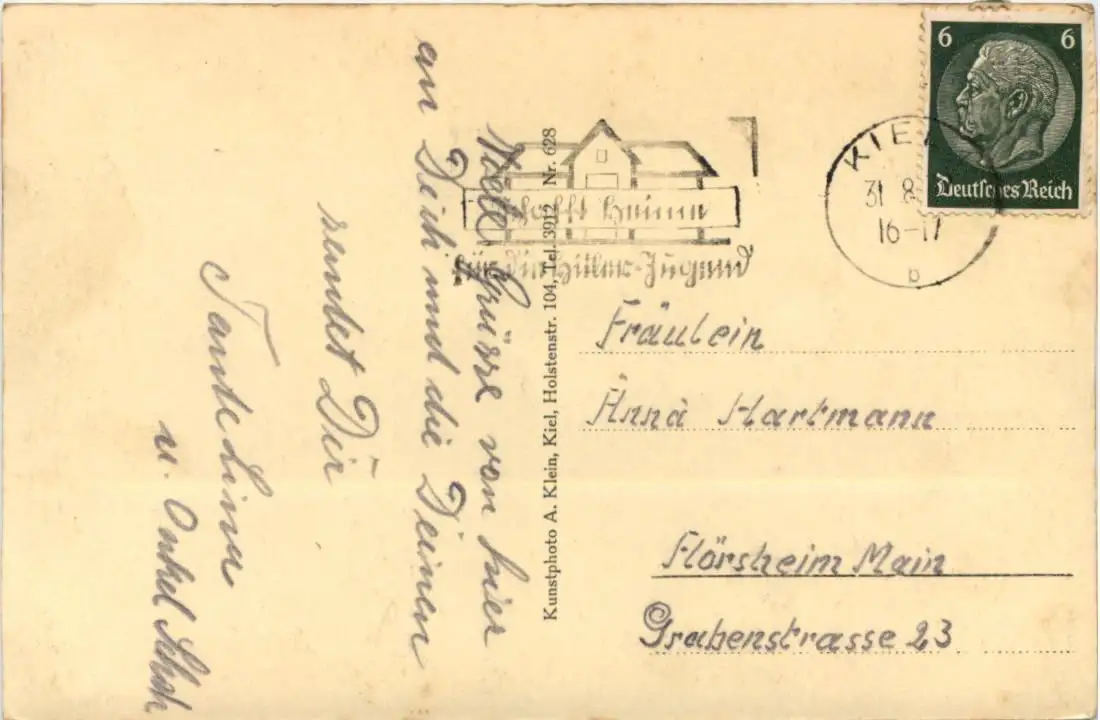 6 6
Deutsches Reich
KIEL
31 8
16-17
b
Schafft Heime
für die Hitler-Jugend
Grüsse von hier
an Dich und die Deinen
sendet Dir
Tante Lina
u. Onkel
Kunstphoto A. Klein, Kiel, Holstenstr. 104, Tel. 3912 Nr. 628
Fräulein
Änna Hartmann
Flörsheim Main
Grabenstrasse 23